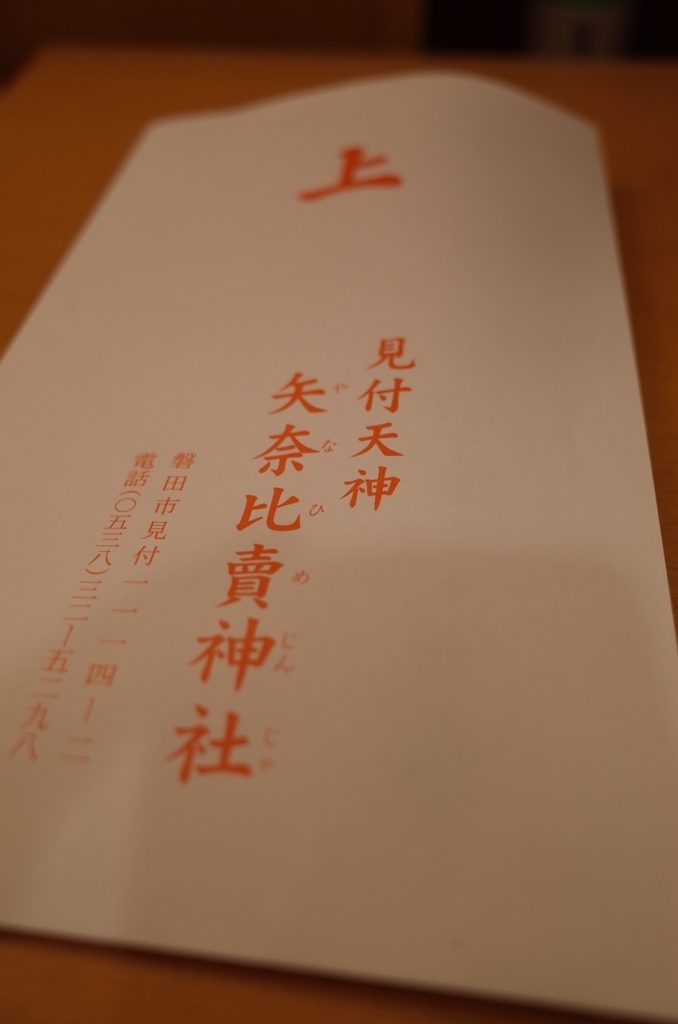 上
見付天神
矢奈比賣神社
やなひめじんじゃ
磐田市見付一一一四ー二
電話(〇五三八)三二ー五二九八